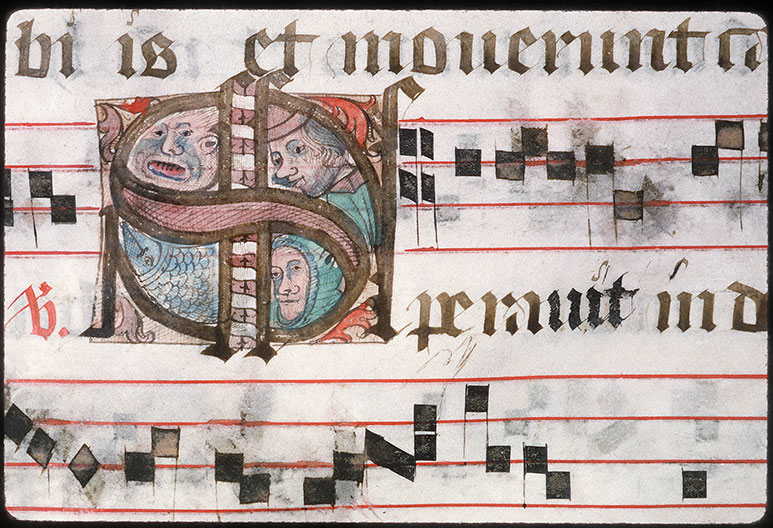 bi is et mouerunt ca
℣. Sperauit in d